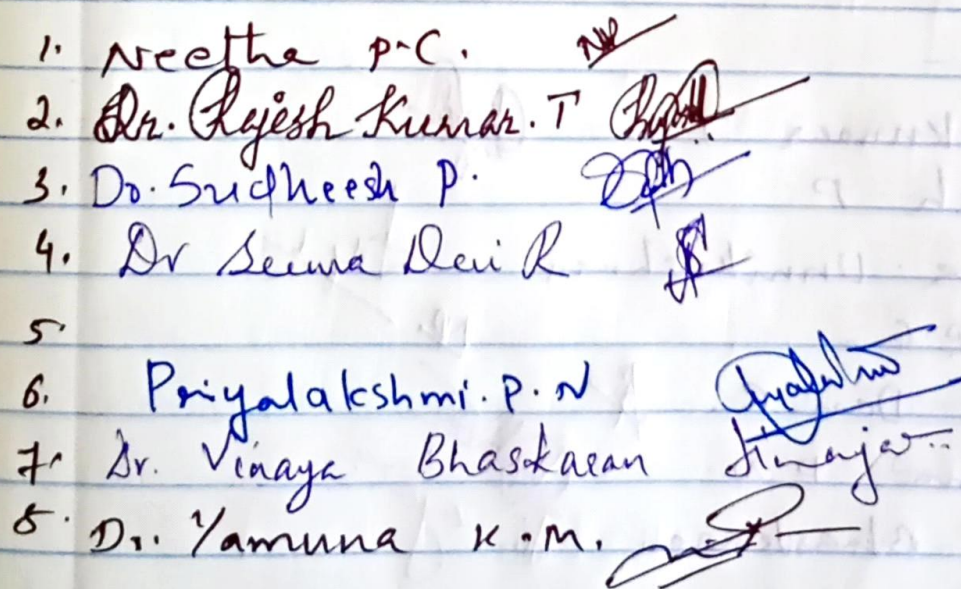 1. Neetha P.C.
2. Dr. Rajesh Kumar. T
3. Dr. Sudheesh P.
4. Dr Seema Devi R
5.
6. Priyalakshmi. P. N
7. Dr. Vinaya Bhaskaran
8. Dr. Yamuna K.M.